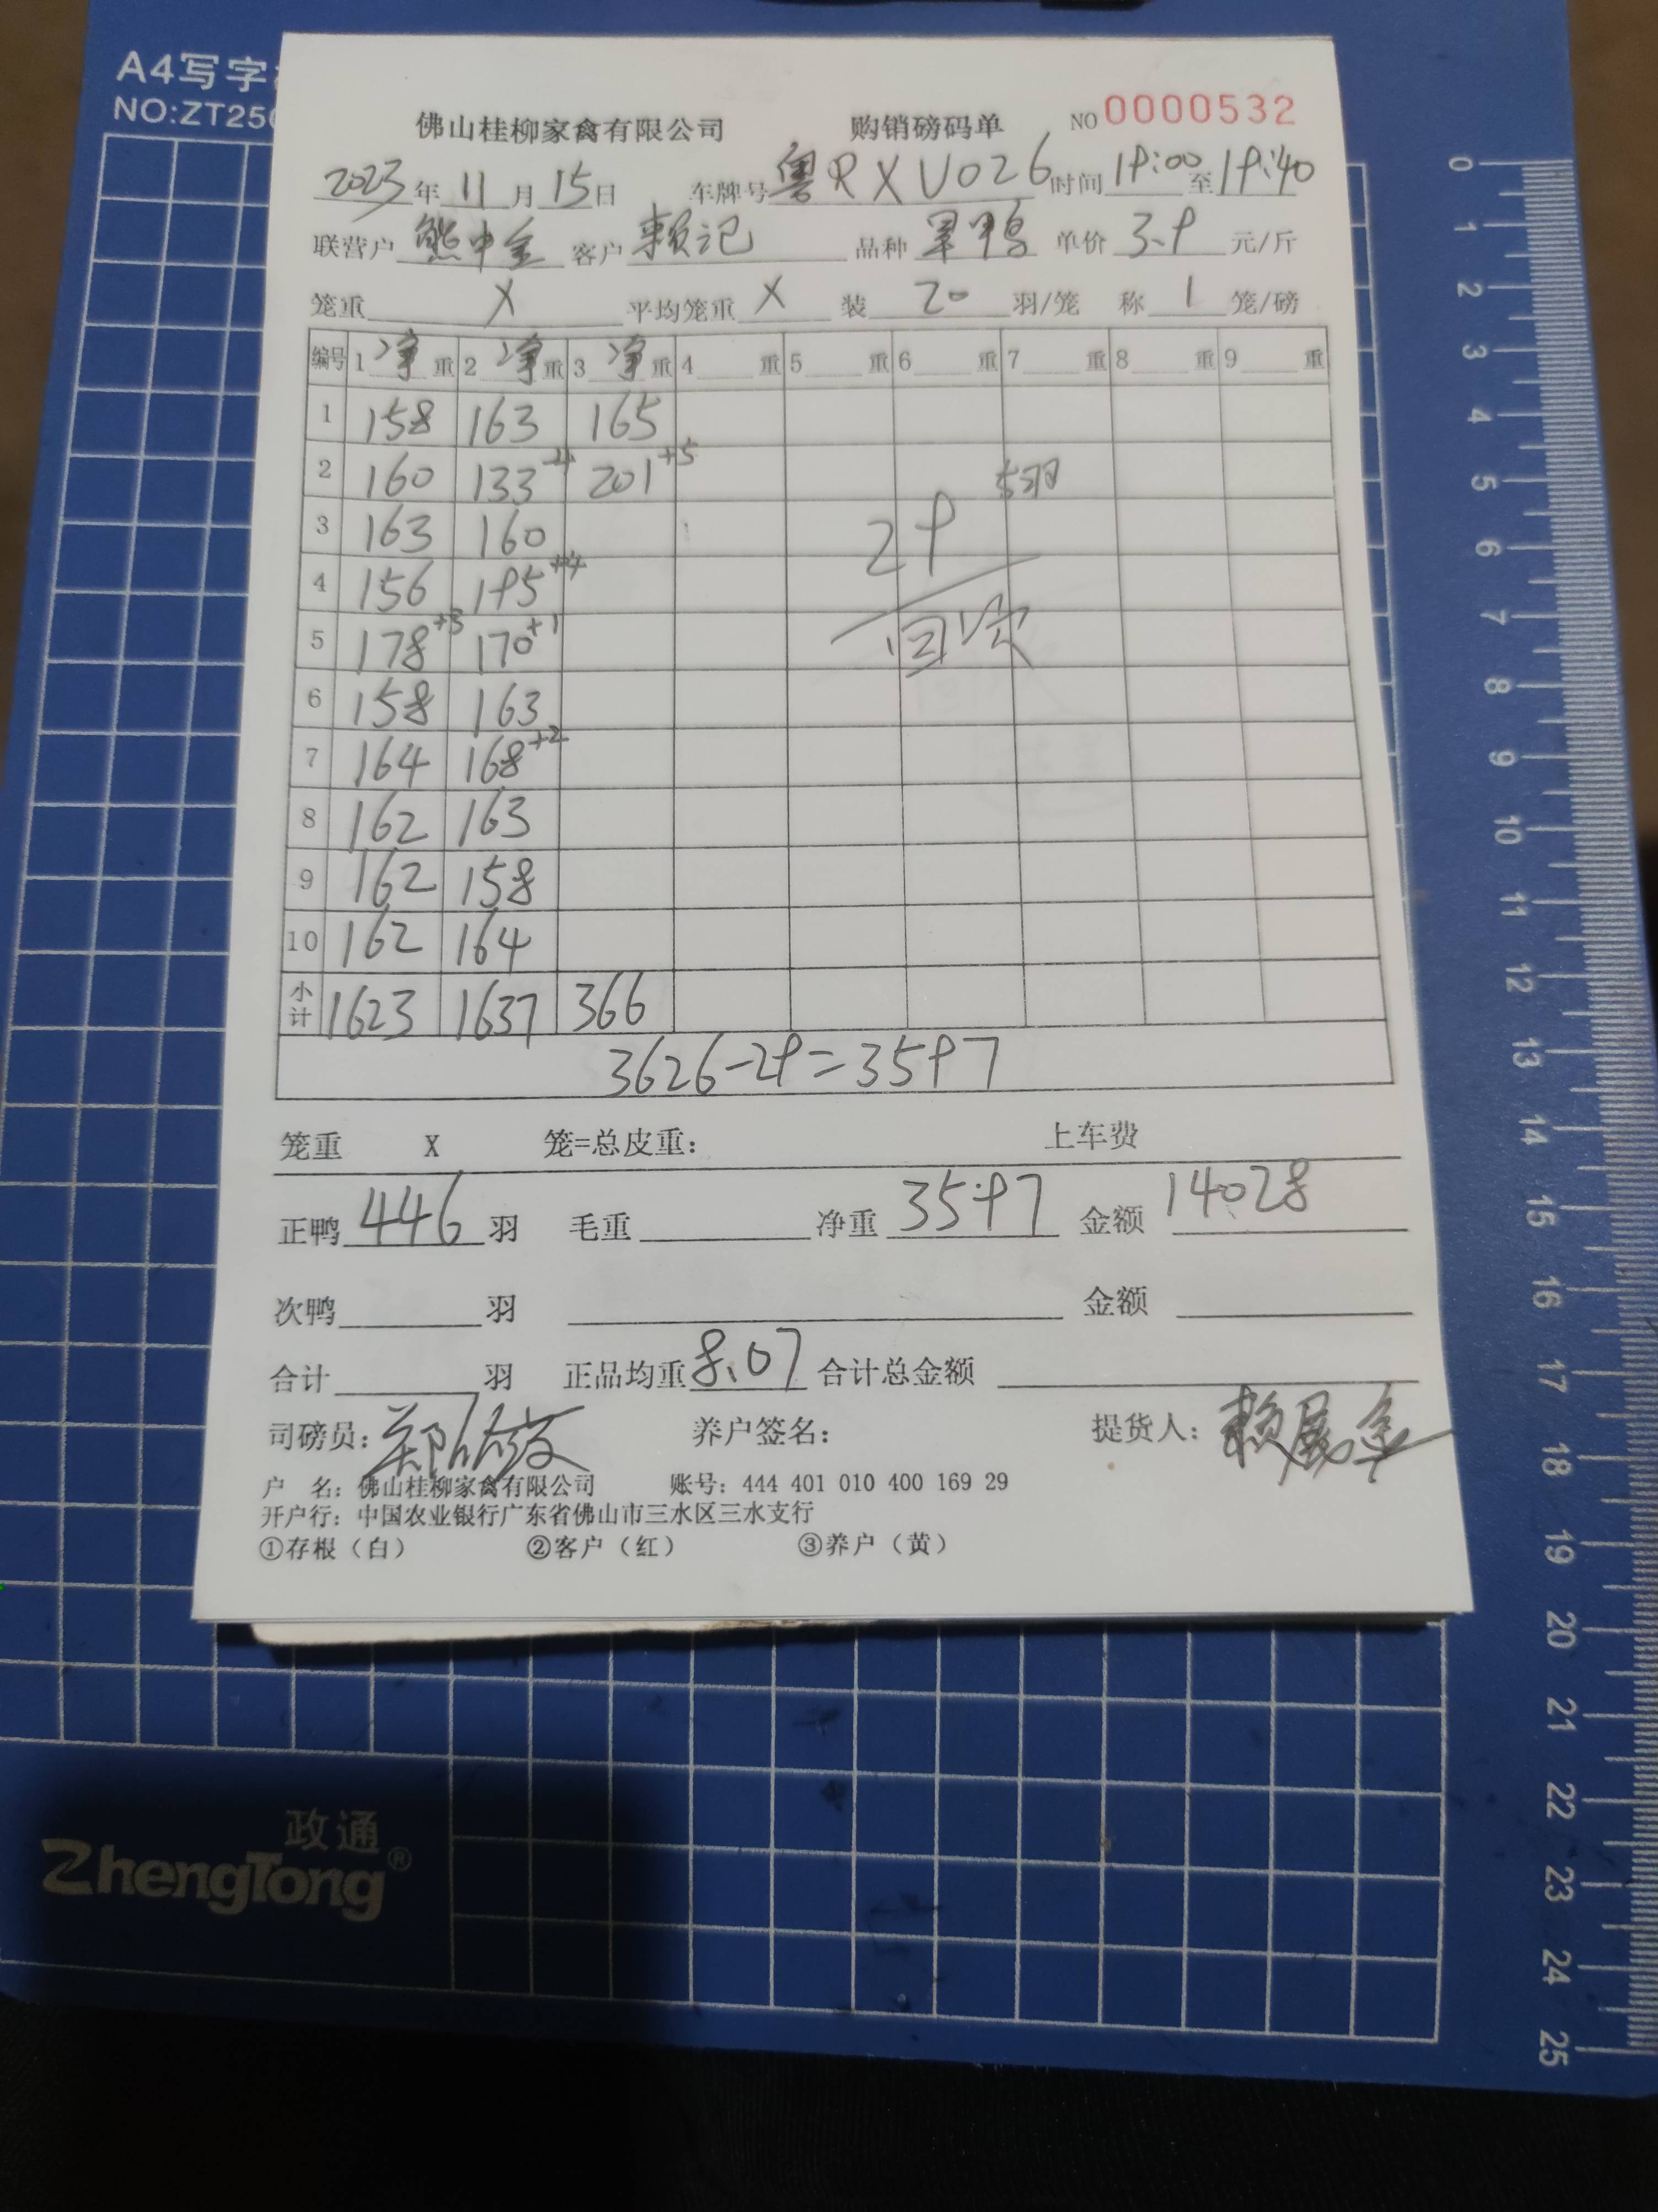 A4写字
NO:ZT250
佛山桂柳家禽有限公司 购销磅码单 NO 0000532
2023年11月15日 车牌号粤RXU026 时间19:00至19:40
联营户熊中金 客户赖记 品种旱鸭 单价3.9元/斤
笼重X 平均笼重X 装20羽/笼 称1笼/磅
编号 1净重 2净重 3净重 4重 5重 6重 7重 8重 9重
1 158 163 165
2 160 133-4 201+5
3 163 160
4 156 195+4
5 178+3 170+1
6 158 163
7 164 168+2
8 162 163
9 162 158
10 162 164
29 5羽
回收
小计 1623 1637 366
3626-29=3597
笼重 X 笼=总皮重： 上车费
正鸭446羽 毛重 净重3597 金额14028
次鸭 羽 金额
合计 羽 正品均重8.07 合计总金额
司磅员： 养户签名： 提货人：赖展
户 名：佛山桂柳家禽有限公司 账号：444 401 010 400 169 29
开户行：中国农业银行广东省佛山市三水区三水支行
①存根（白） ②客户（红） ③养户（黄）
政通
ZhengTong®
0
1
2
3
4
5
6
7
8
9
10
11
12
13
14
15
16
17
18
19
20
21
22
23
24
25